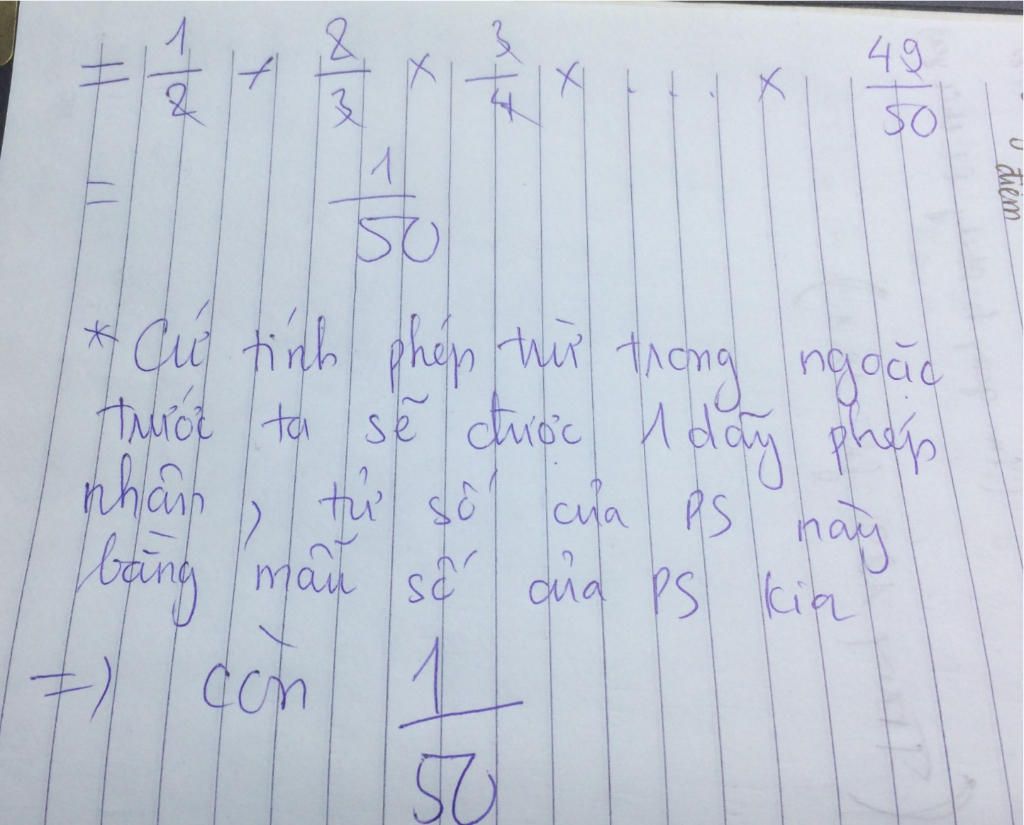 = 1/2 × 2/3 × 3/4 × . . . × 49/50
= 1/50
* Cứ tính phép trừ trong ngoặc
trước ta sẽ được 1 dãy phép
nhân, tử số của PS này
bằng mẫu số của PS kia
=> còn 1/50
điểm